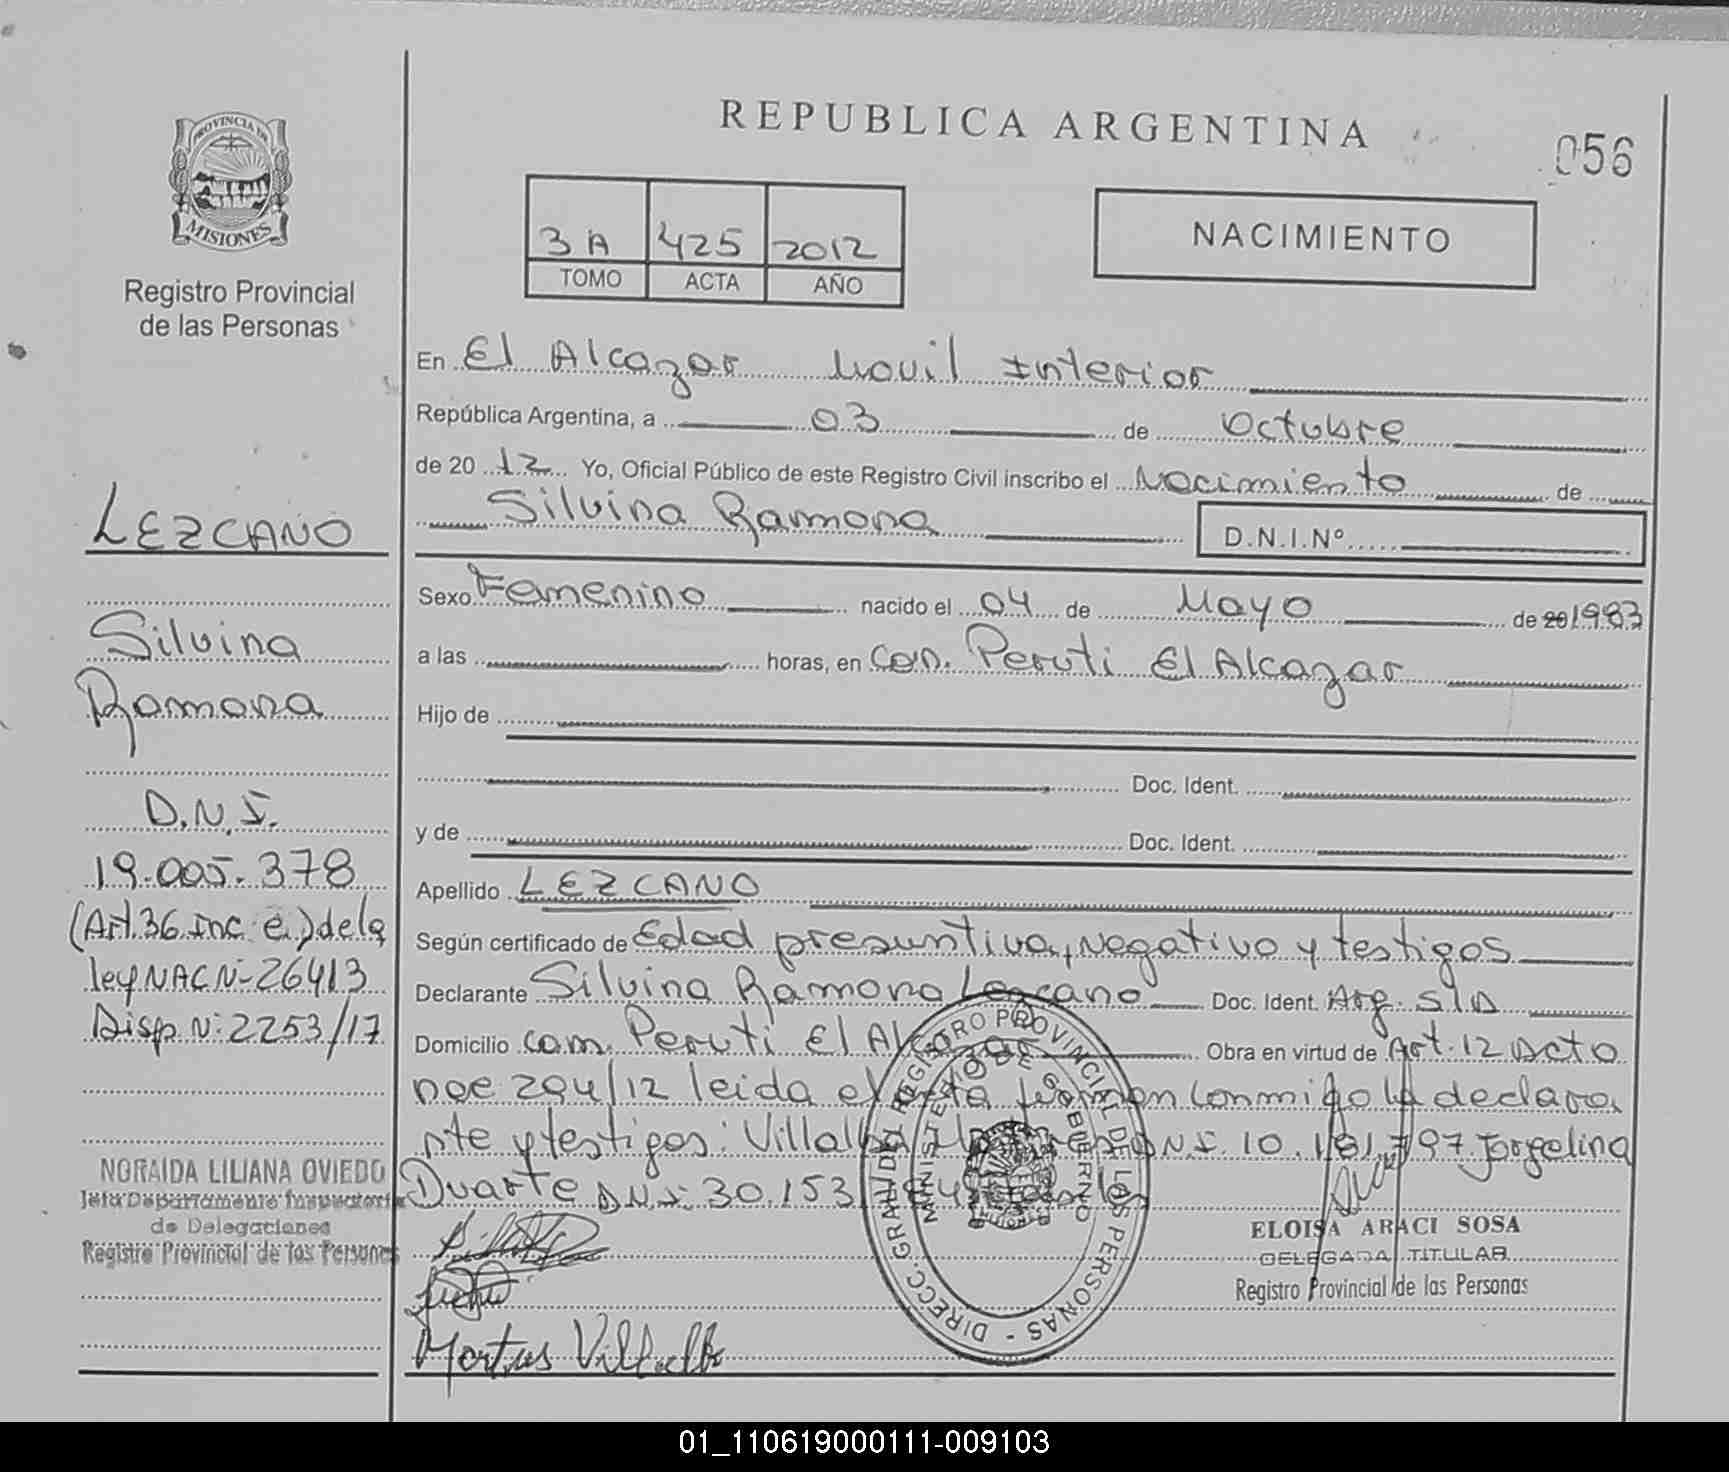 REPUBLICA ARGENTINA
056
PROVINCIA DE
MISIONES
Registro Provincial
de las Personas
3A 425 2012
TOMO ACTA AÑO
NACIMIENTO
En El Alcazar Movil Interior
República Argentina, a 03 de Octubre
de 20 12 Yo, Oficial Público de este Registro Civil inscribo el Nacimiento de
Silvina Ramona
D.N.I.Nº
Sexo Femenino nacido el 04 de Mayo de 20 1983
a las horas, en Com. Peruti El Alcazar
Hijo de
Doc. Ident.
y de Doc. Ident.
Apellido LEZCANO
Según certificado de Edad presuntiva, negativo y testigos
Declarante Silvina Ramona Lezcano Doc. Ident. Arg. S/D
Domicilio Com. Peruti El Alcazar Obra en virtud de Art. 12 Dcto
nee 294/12 leida el acta firman conmigo la declara
nte y testigos: Villalba D.N.I. 10.181.797 Jorgelina
Duarte D.N.I. 30.153
LEZCANO
Silvina
Ramona
D.N.I.
19.005.378
(Art.36 Inc e.) de la
ley NAC Nº 26413
Disp. Nº: 2253/17
NORAIDA LILIANA OVIEDO
Jefa Departamento Inspectoria
de Delegaciones
Registro Provincial de las Personas
DIRECC. GRAL. DEL REGISTRO PROVINCIAL DE LAS PERSONAS
MINISTERIO DE GOBIERNO
ELOISA ARACI SOSA
DELEGADA TITULAR
Registro Provincial de las Personas
Villalba
01_110619000111-009103